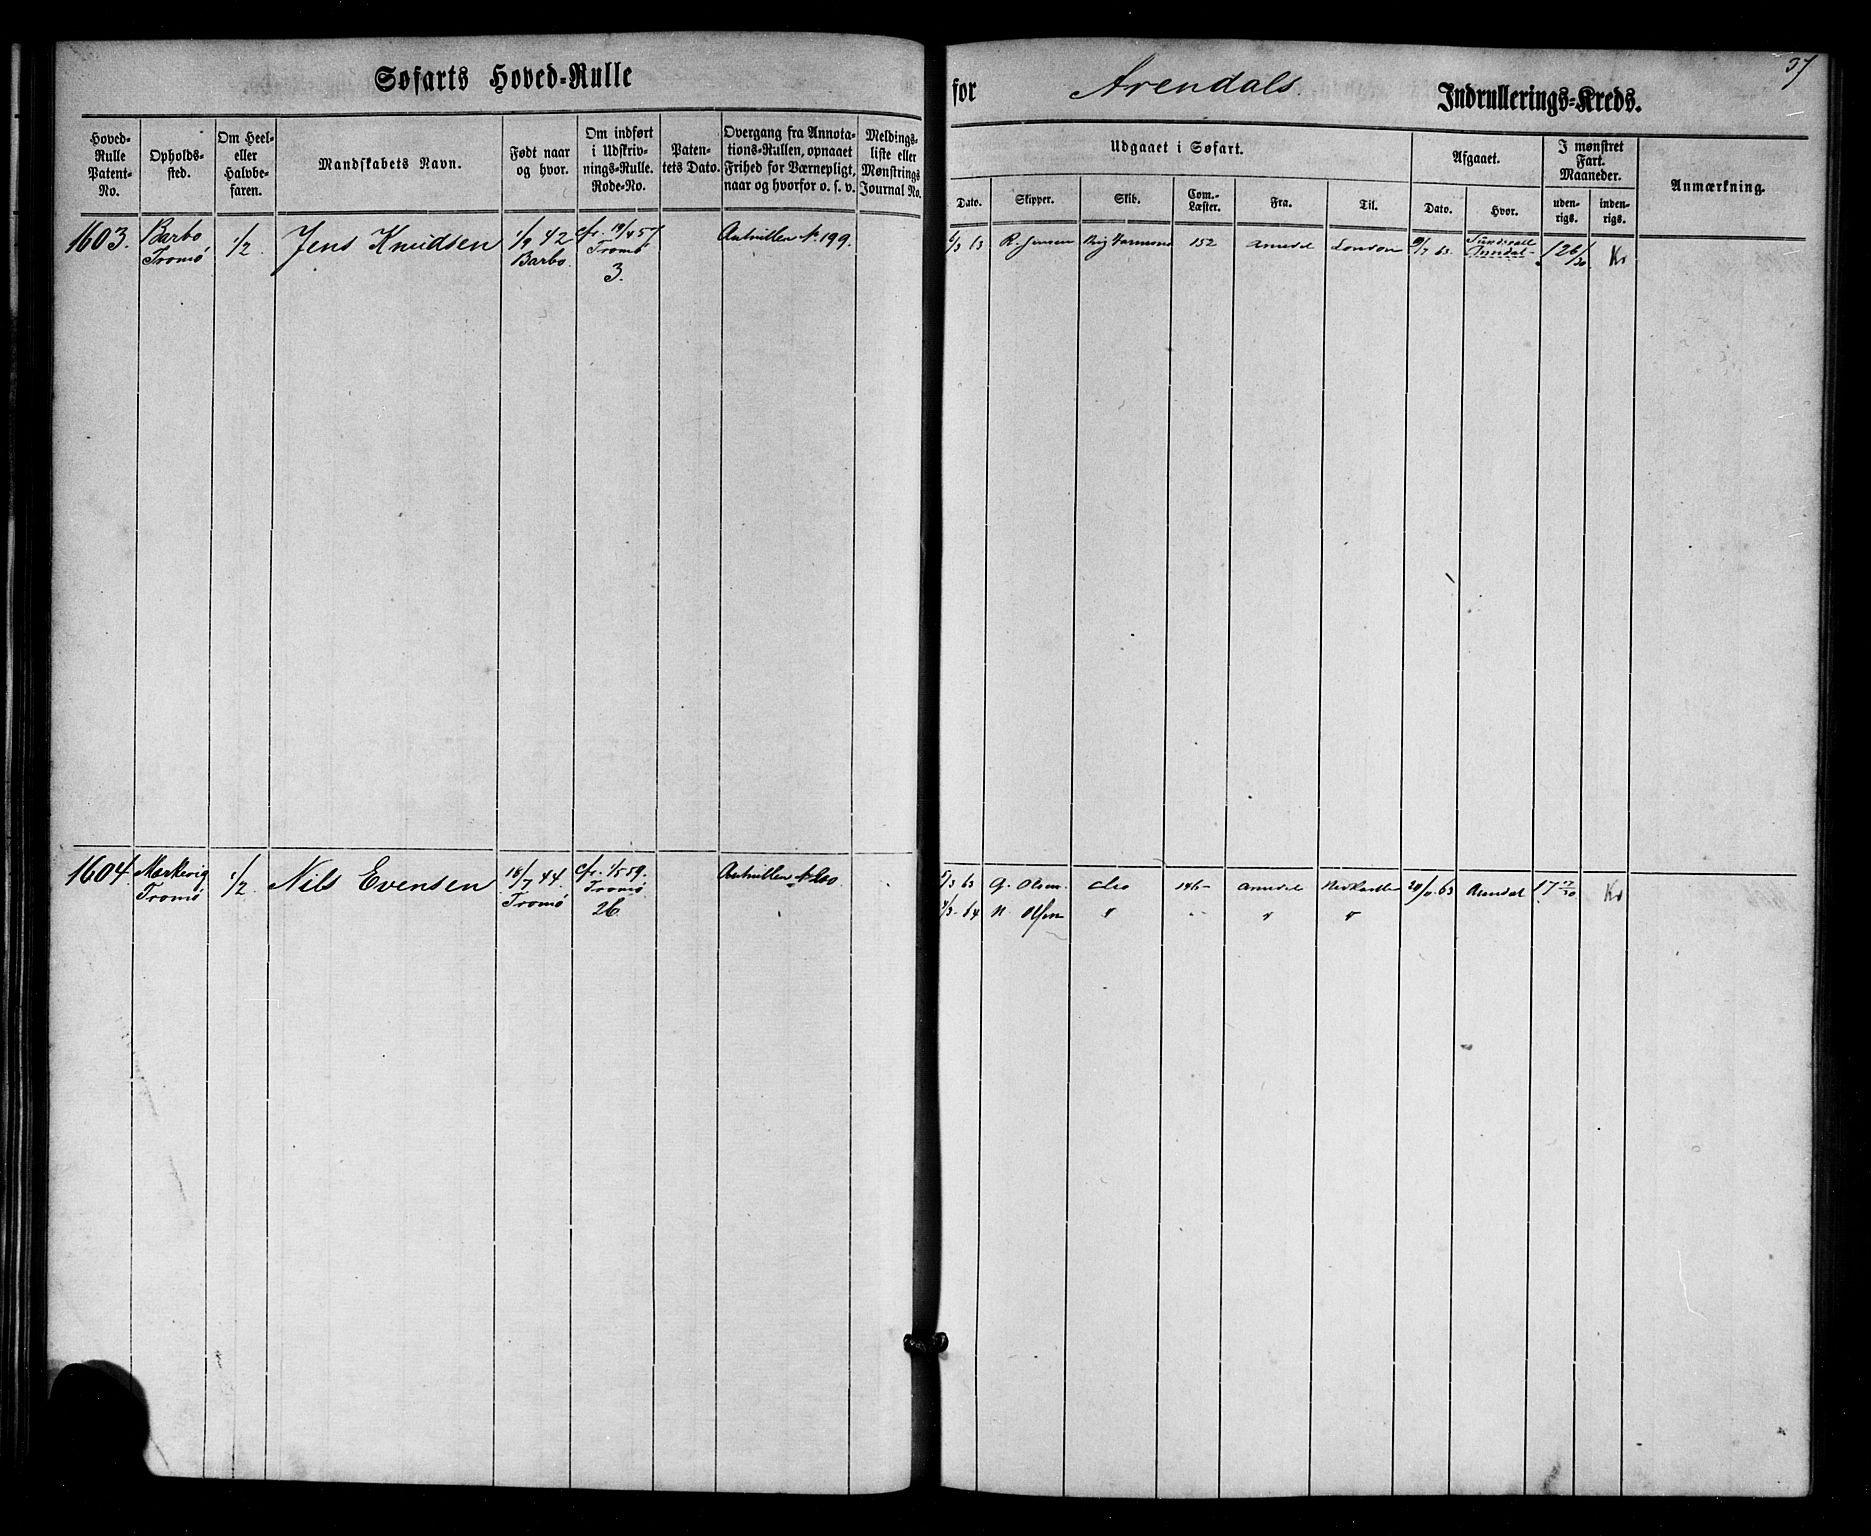 Søfarts Hoved-Rulle
for Arendals Indrullerings-Kreds.
37
Hoved-Rulle Patent-No.
Opholds-sted.
Om Heel- eller Halvbe-faren.
Mandskabets Navn.
Født naar og hvor.
Om indført i Udskriv-nings-Rulle. Rode-No.
Paten-tets Dato.
Overgang fra Annota-tions-Rullen, opnaaet Frihed for Værnepligt, naar og hvorfor o. s. v.
Meldings-liste eller Mønstrings Journal No.
Udgaaet i Søfart.
Dato.
Skipper.
Skib.
Com.-Læster.
Fra.
Til.
Afgaaet.
Dato.
Hvor.
I mønstret Fart. Maaneder.
uden-rigs.
inden-rigs.
Anmærkning.
1603.
Barbo
Tromø
1/2
Jens Knudsen
1/9 42
Barbo.
cfr. 19/4 57
Tromø
3.
No 199.
R. Jensen
Brig
152
Arendal
London
9/7 63.
Arendal
1 26/30
1604.
Tromø
1/2
Nils Evensen
18/7 44.
Tromø
cfr. 1/5 59.
Tromø
26.
No 200.
5/3 63
G. Olsen
146
Arendal
Arendal
17 17/30
4/3 64
N. Olsen
"
"
"
"